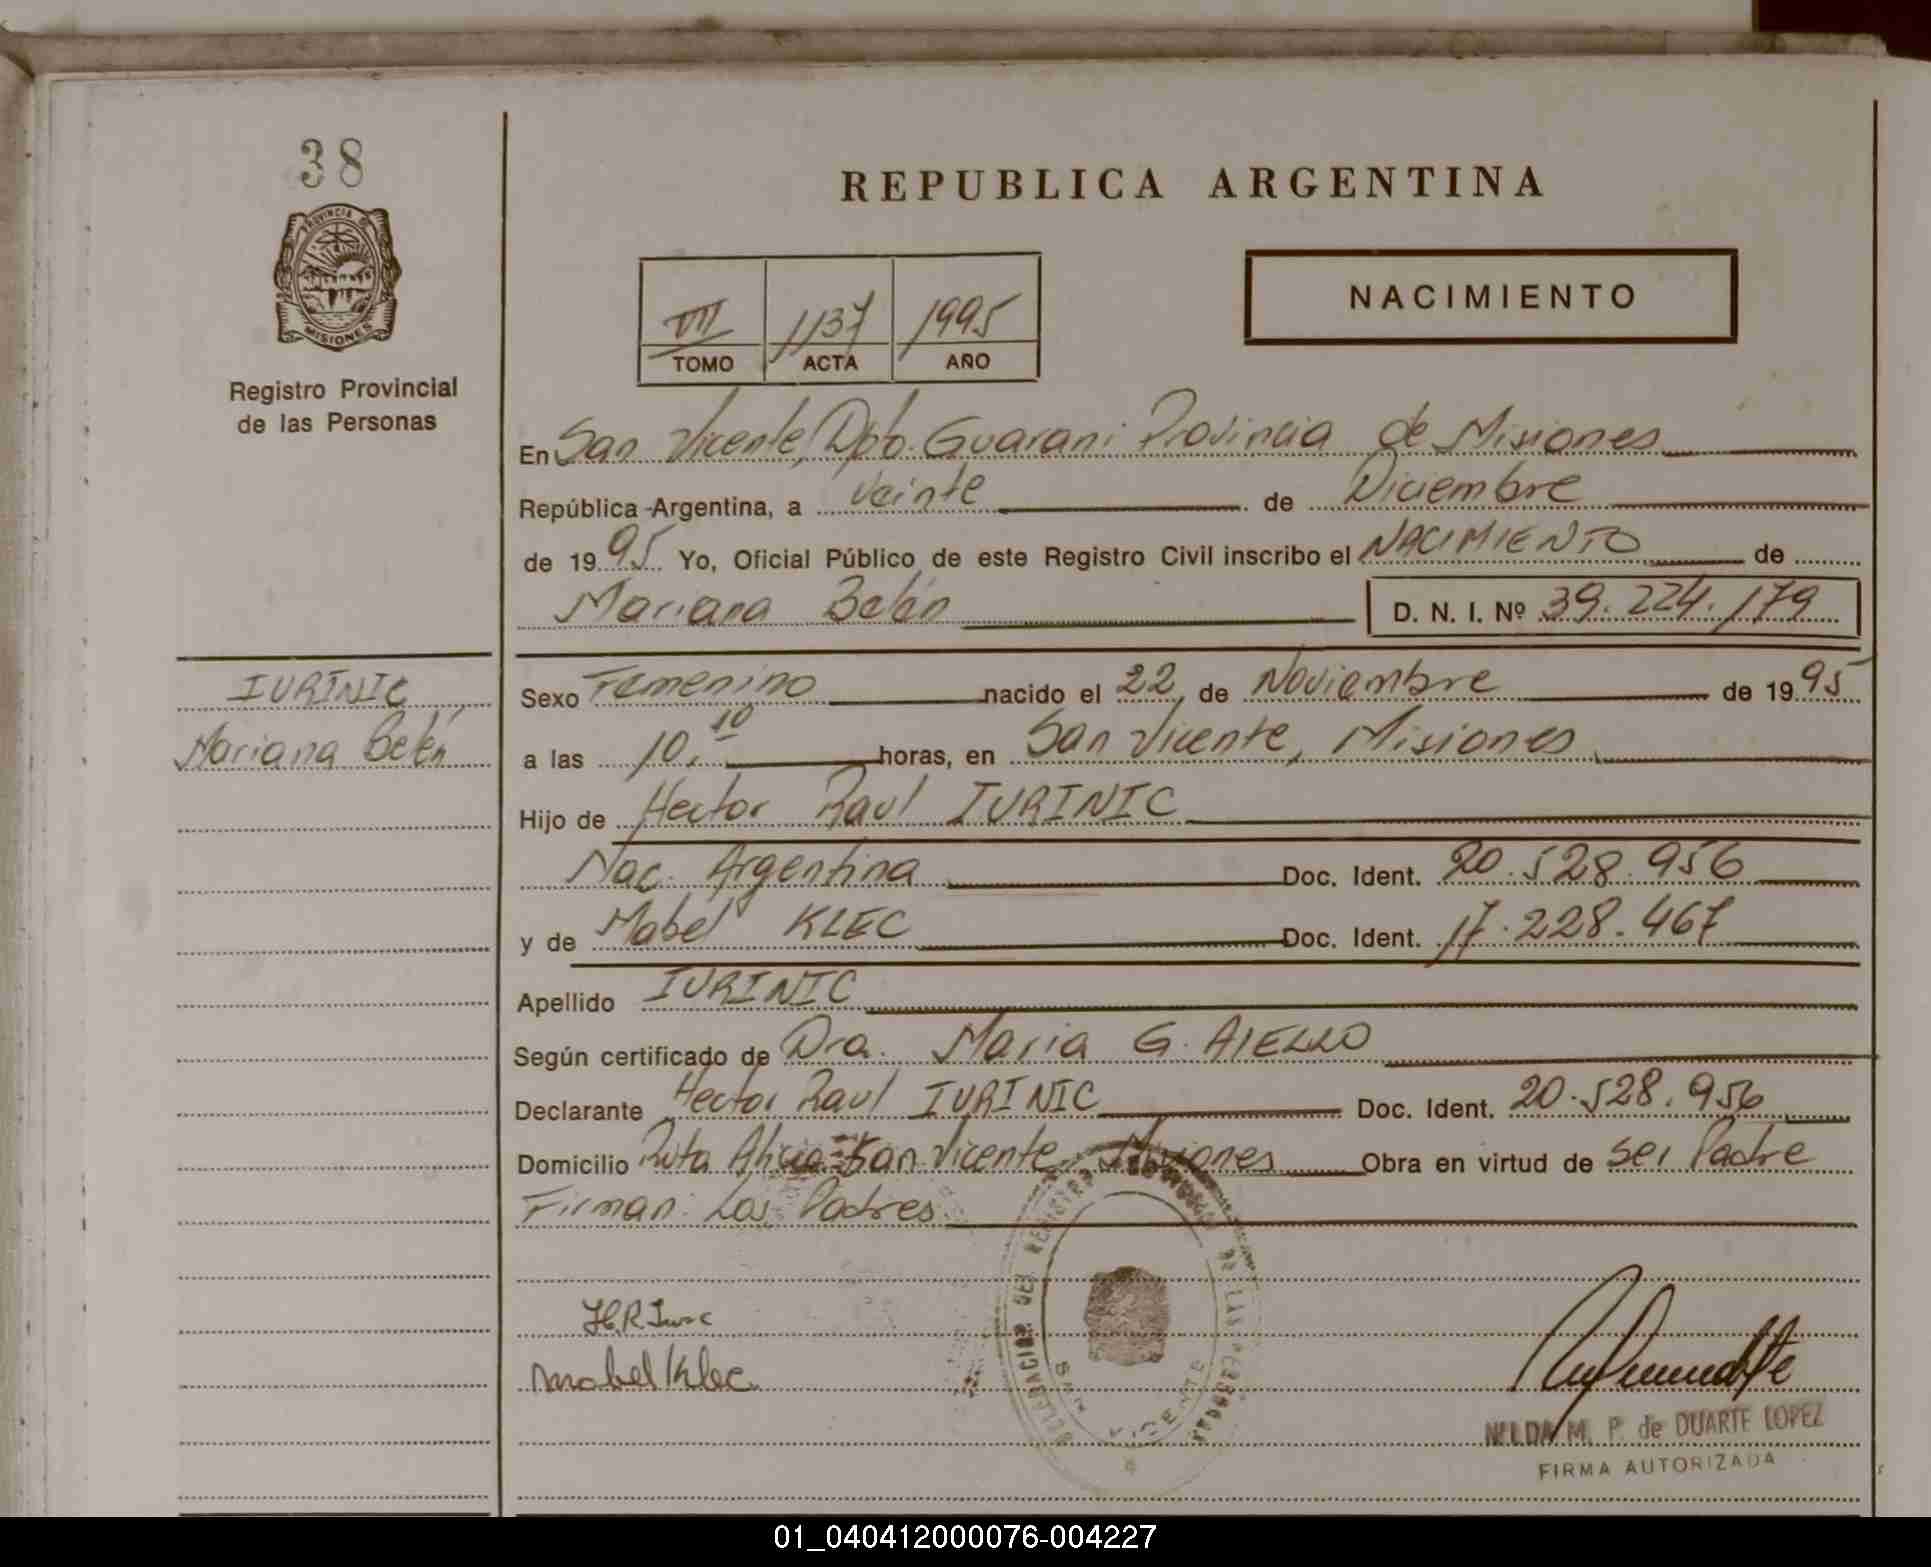 38
PROVINCIA DE
MISIONES
Registro Provincial
de las Personas
REPUBLICA ARGENTINA
VII 1137 1995
TOMO ACTA AÑO
NACIMIENTO
En San Vicente, Dpto. Guarani Provincia de Misiones
República Argentina, a veinte de Diciembre
de 1995 Yo, Oficial Público de este Registro Civil inscribo el NACIMIENTO de
Mariana Belén D. N. I. Nº 39.224.179
IURINIC
Mariana Belén
Sexo Femenino nacido el 22 de Noviembre de 1995
a las 10,10 horas, en San Vicente, Misiones
Hijo de Hector Raul IURINIC
Nac. Argentina Doc. Ident. 20.528.956
y de Mabel KLEC Doc. Ident. 17.228.467
Apellido IURINIC
Según certificado de Dra. Maria G. AIELLO
Declarante Hector Raul IURINIC Doc. Ident. 20.528.956
Domicilio Ruta Alicia San Vicente Misiones Obra en virtud de ser Padre
Firman: Los Padres
DELEGACION DEL REGISTRO DE LAS PERSONAS
SAN VICENTE
Mabel Klec
NELDA M. P. de DUARTE LOPEZ
FIRMA AUTORIZADA
01_040412000076-004227